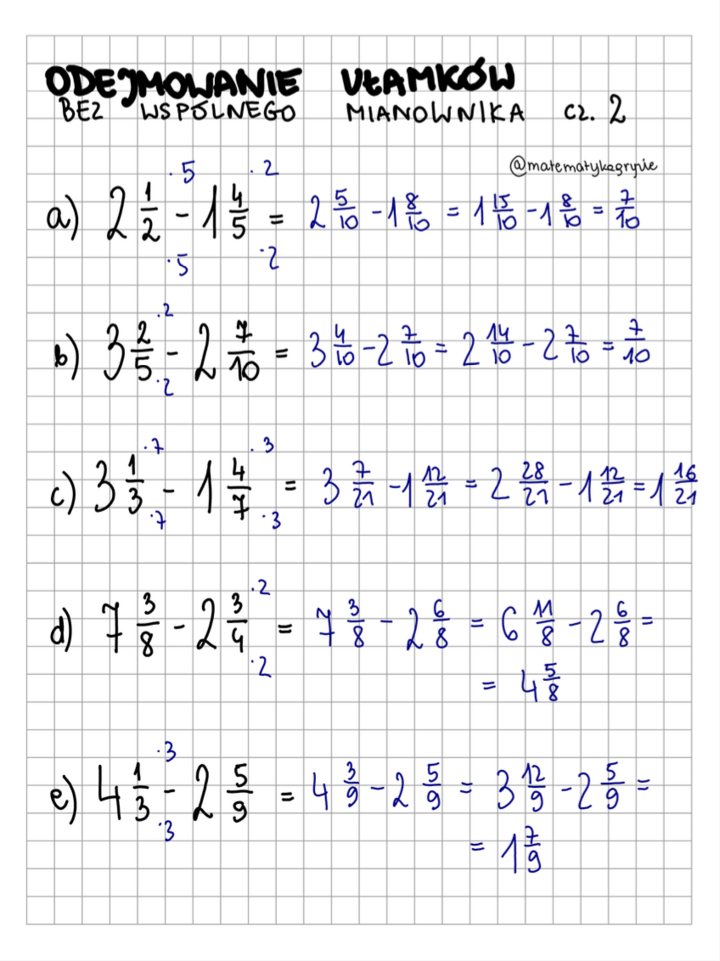 ODEJMOWANIE UŁAMKÓW
BEZ WSPÓLNEGO MIANOWNIKA cz. 2
@matematykagryzie
a) 2 1/2 - 1 4/5 = 2 5/10 - 1 8/10 = 1 15/10 - 1 8/10 = 7/10
·5 ·2
·5 ·2
b) 3 2/5 - 2 7/10 = 3 4/10 - 2 7/10 = 2 14/10 - 2 7/10 = 7/10
·2
·2
c) 3 1/3 - 1 4/7 = 3 7/21 - 1 12/21 = 2 28/21 - 1 12/21 = 1 16/21
·7 ·3
·7 ·3
d) 7 3/8 - 2 3/4 = 7 3/8 - 2 6/8 = 6 11/8 - 2 6/8 =
·2
·2
= 4 5/8
e) 4 1/3 - 2 5/9 = 4 3/9 - 2 5/9 = 3 12/9 - 2 5/9 =
·3
·3
= 1 7/9